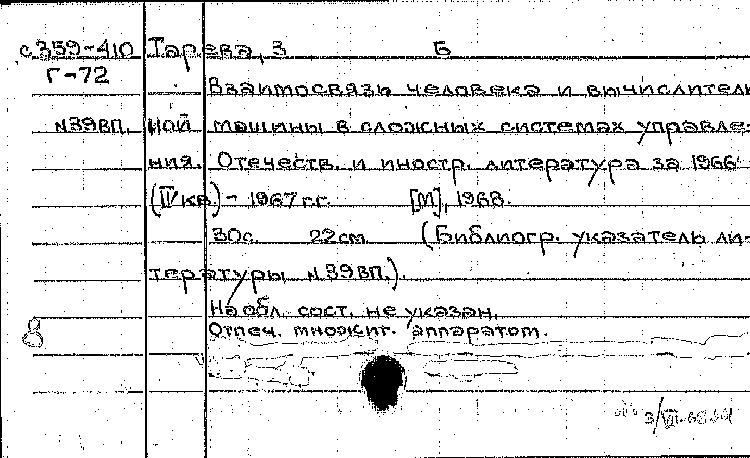 с359-410 Тарева, З Б
Г-72
Взаимосвязи человека и вычислитель
№39вп. ной машины в сложных системах управле-
ния. Отечеств. и иностр. литература за 1966
(IV кв.) - 1967 г.г. [М], 1968.
30с. 22см. (Библиогр. указатель ли-
тературы №39вп.).
На обл. сост. не указан.
Отпеч. множит. аппаратом.
8